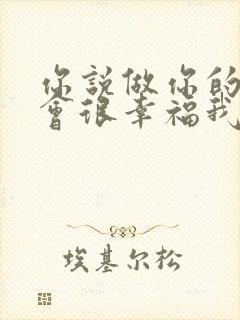 你說做你的
會很幸福我
埃基尔松